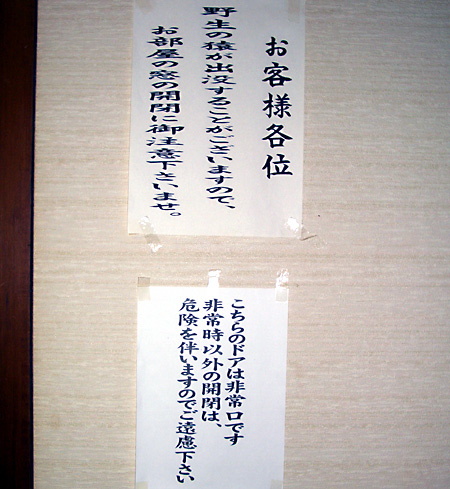 お客様各位
野生の猿が出没することがございますので、
お部屋の窓の開閉に御注意下さいませ。
こちらのドアは非常口です
非常時以外の開閉は、
危険を伴いますのでご遠慮下さい